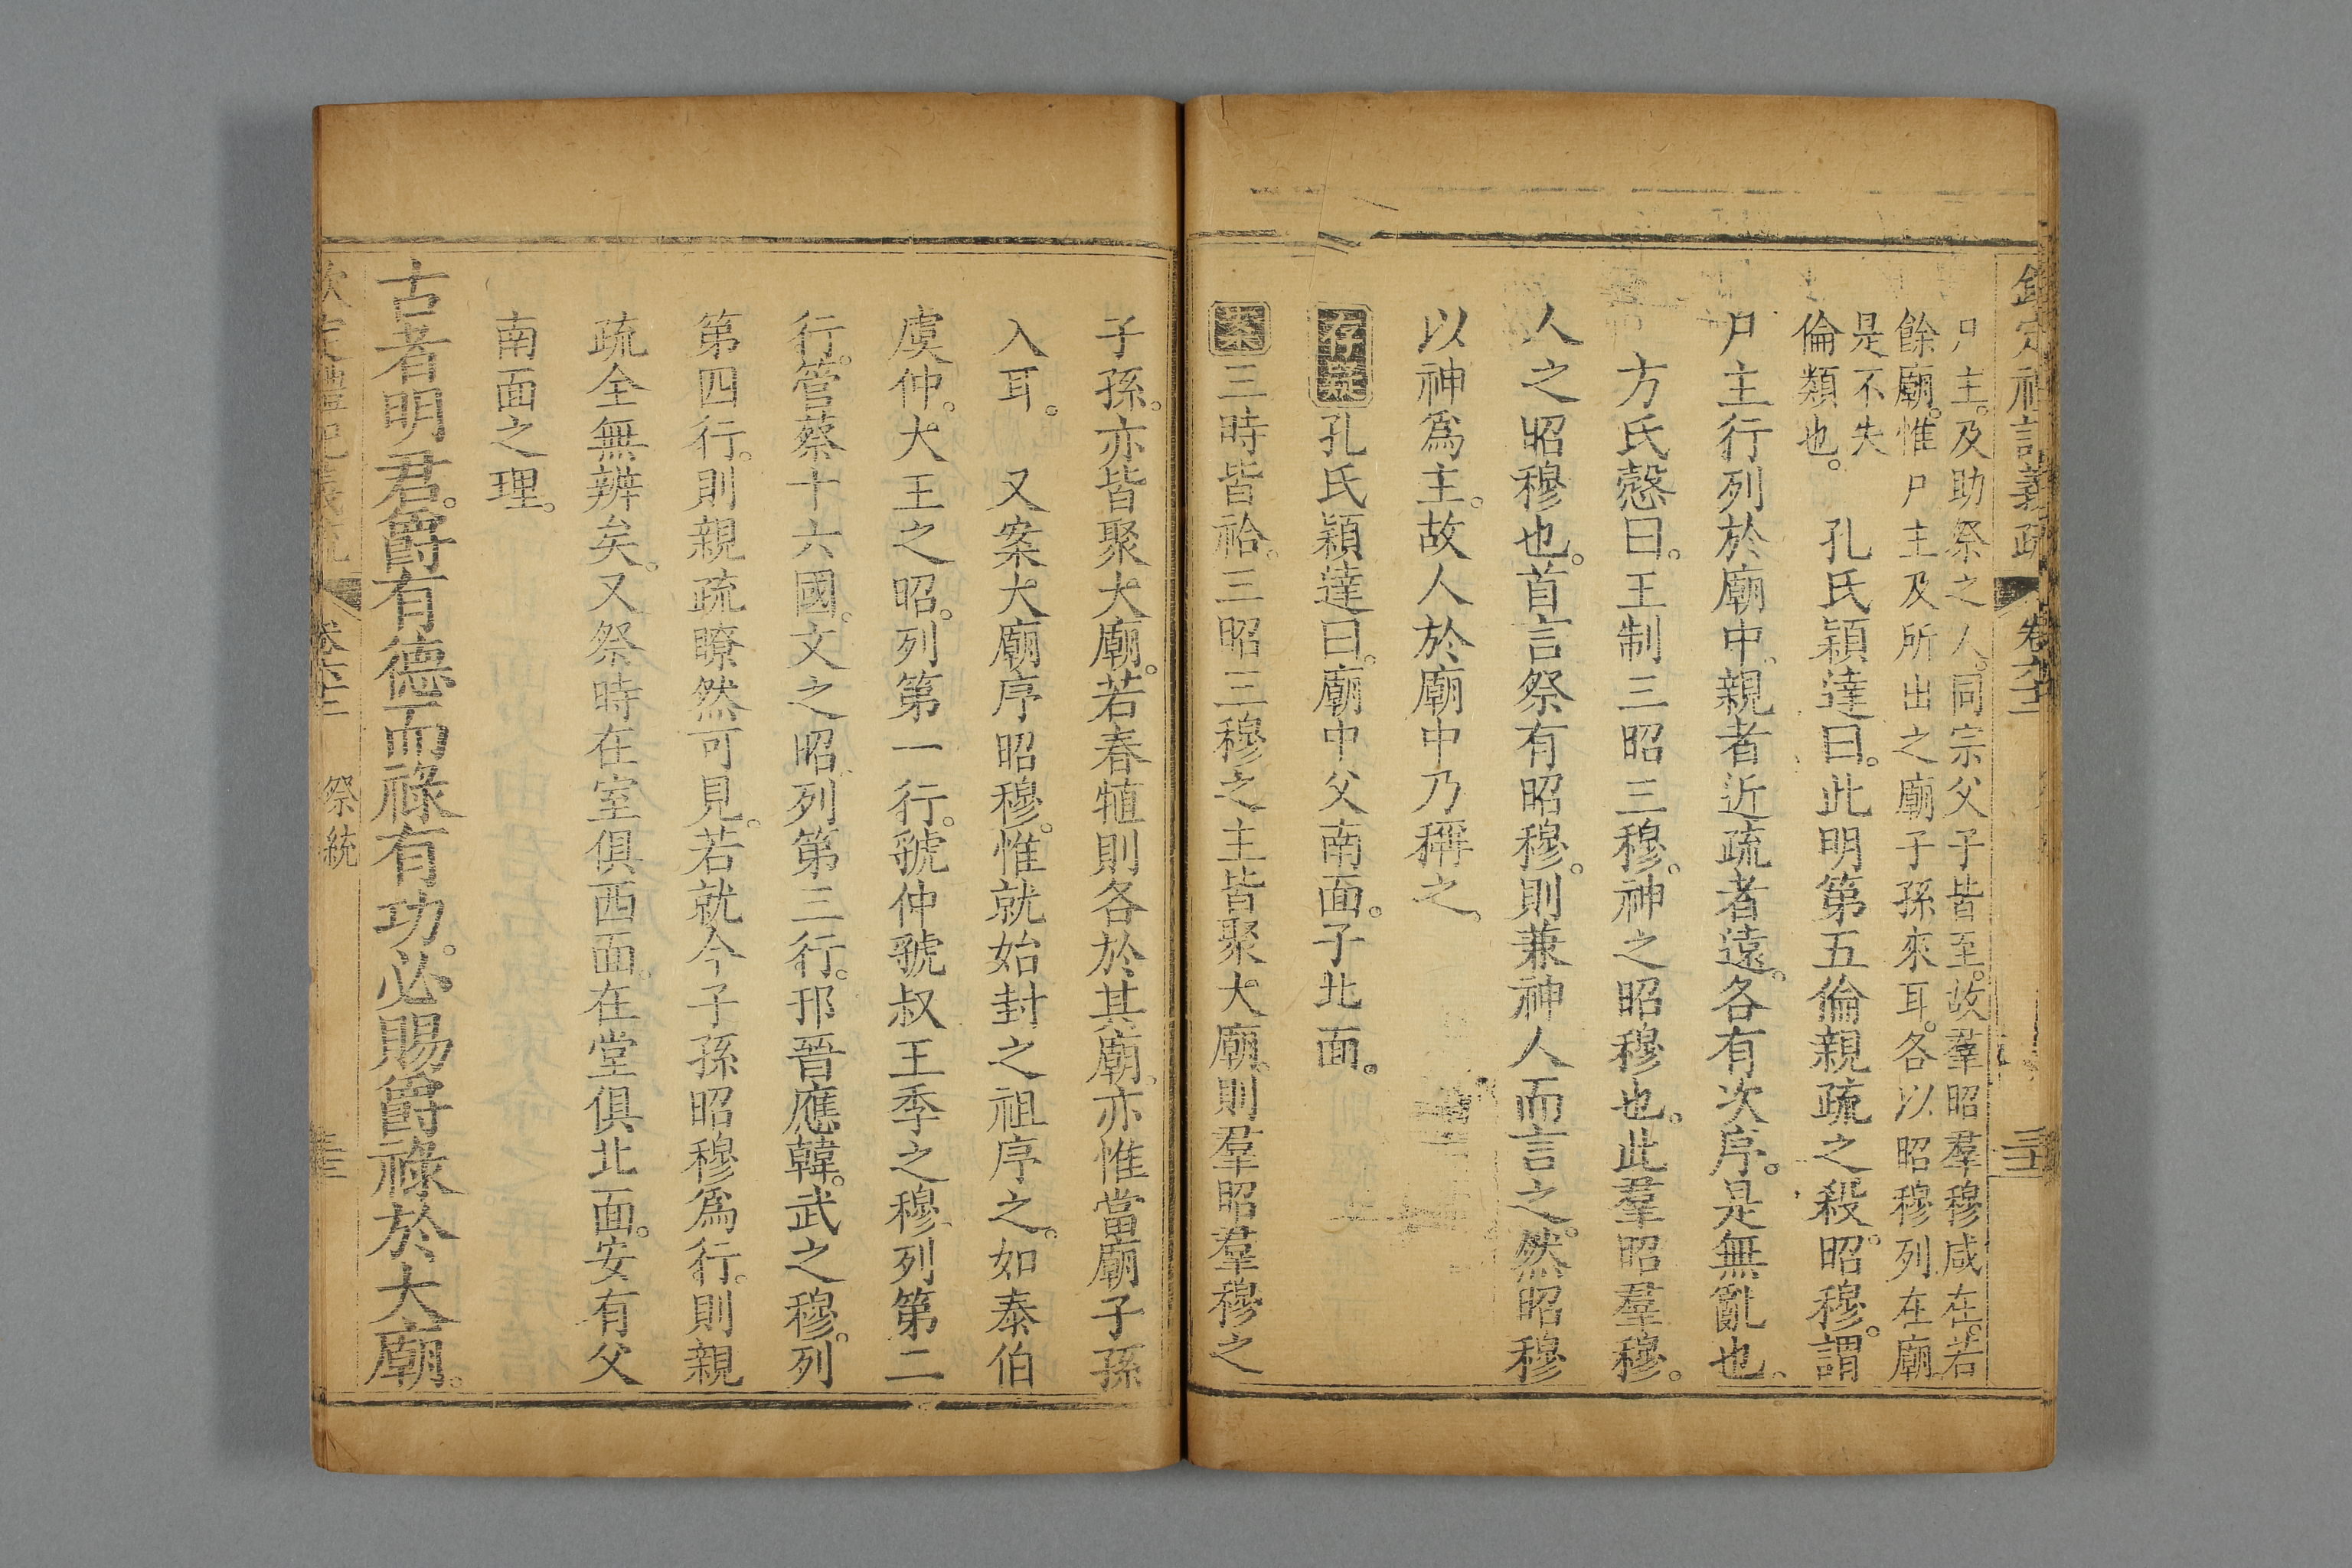 欽定禮記義疏 卷六十二
尸主。及助祭之人。同宗父子皆至。故羣昭羣穆咸在。若
餘廟。惟尸主及所出之廟子孫來耳。各以昭穆列在廟。
是不失
倫類也。 孔氏穎達曰。此明第五倫親疏之殺。昭穆。謂
尸主行列於廟中、親者近疏者遠。各有次序。是無亂也、
方氏慤曰。王制三昭三穆。神之昭穆也。此羣昭羣穆。
人之昭穆也。首言祭有昭穆。則兼神人而言之。然昭穆
以神爲主。故人於廟中乃稱之。
存疑 孔氏穎達曰。廟中父南面。子北面。
案 三時皆祫。三昭三穆之主皆聚大廟。則羣昭羣穆之
子孫。亦皆聚大廟。若春犆則各於其廟、亦惟當廟子孫
入耳。 又案大廟序昭穆。惟就始封之祖序之。如泰伯
虞仲。大王之昭。列第一行。虢仲虢叔王季之穆、列第二
行。管蔡十六國。文之昭、列第三行。邗晉應韓。武之穆。列
第四行。則親疏瞭然可見。若就今子孫昭穆爲行。則親
疏全無辨矣。又祭時在室俱西面。在堂俱北面。安有父
南面之理。
古者明君。爵有德而祿有功。必賜爵祿於大廟。
欽定禮記義疏 卷六十二 祭統